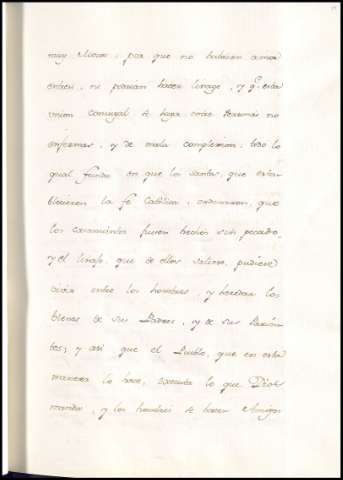 muy chicos, por que no habrian amor
entresi, ni podrian hacer linage, y q.e esta
union conyugal se haga entre Personas no
enfermas, y de mala complexion: todo lo
qual fundo en que los santos, que estan
blecieron la fe Catolica, ordenaron, que
los casamientos fuesen hechos sin pecado,
y el linage, que de ellos saliere, pudiese
vivir entre los hombres, y heredar los
bienes de sus Padres, y de sus Parien
tes; y asi que el Pueblo, que en esta
manera lo hace, executa lo que Dios
manda, y los hombres se hacen Amigos